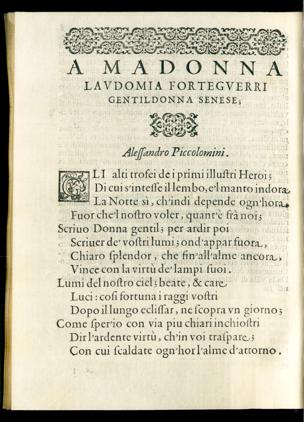 A MADONNA
LAVDOMIA FORTEGVERRI
GENTILDONNA SENESE;
Alessandro Piccolomini.
GLI alti trofei de i primi illustri Heroi;
Di cui s'intesse il lembo, e'l manto indora
La Notte sì, ch'indi depende ogn'hora
Fuor che'l nostro voler, quant'è frà noi;
Scriuo Donna gentil; per ardir poi
Scriuer de' vostri lumi; ond'appar fuora,
Chiaro splendor, che fin'all'alme ancora,
Vince con la virtù de' lampi suoi.
Lumi del nostro ciel; beate, & care
Luci: così fortuna i raggi vostri
Dopo il lungo eclissar, ne scopra vn giorno;
Come sper'io con via piu chiari inchiostri
Dir l'ardente virtù, ch'in voi traspare;
Con cui scaldate ogn'hor l'alme d'attorno.